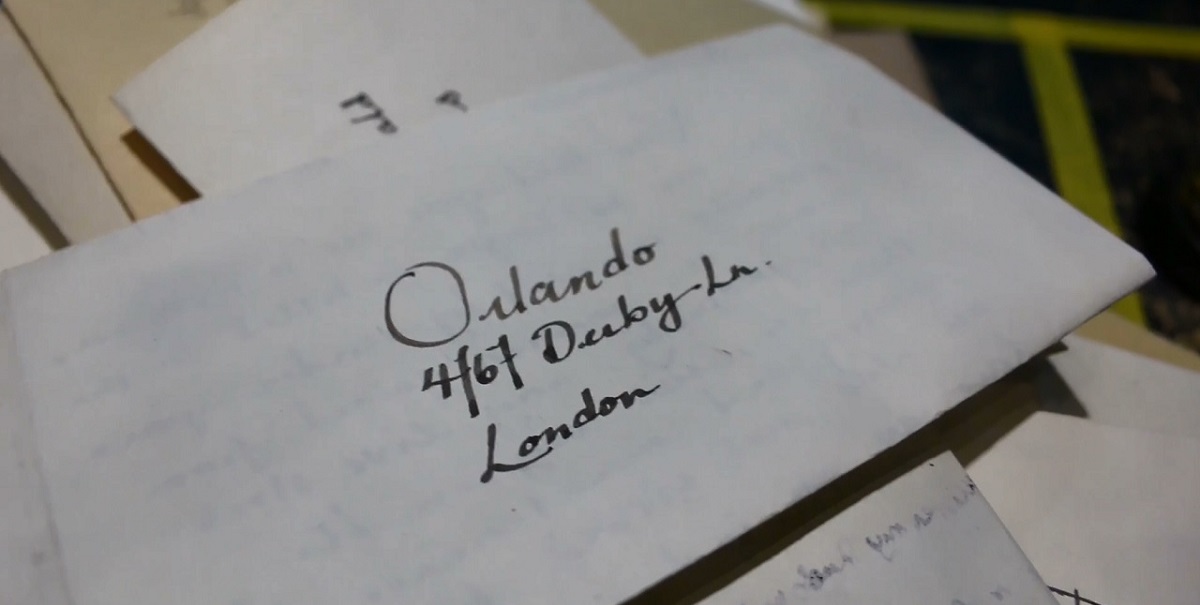 PTO
Orlando
4/67 Derby Ln.
London